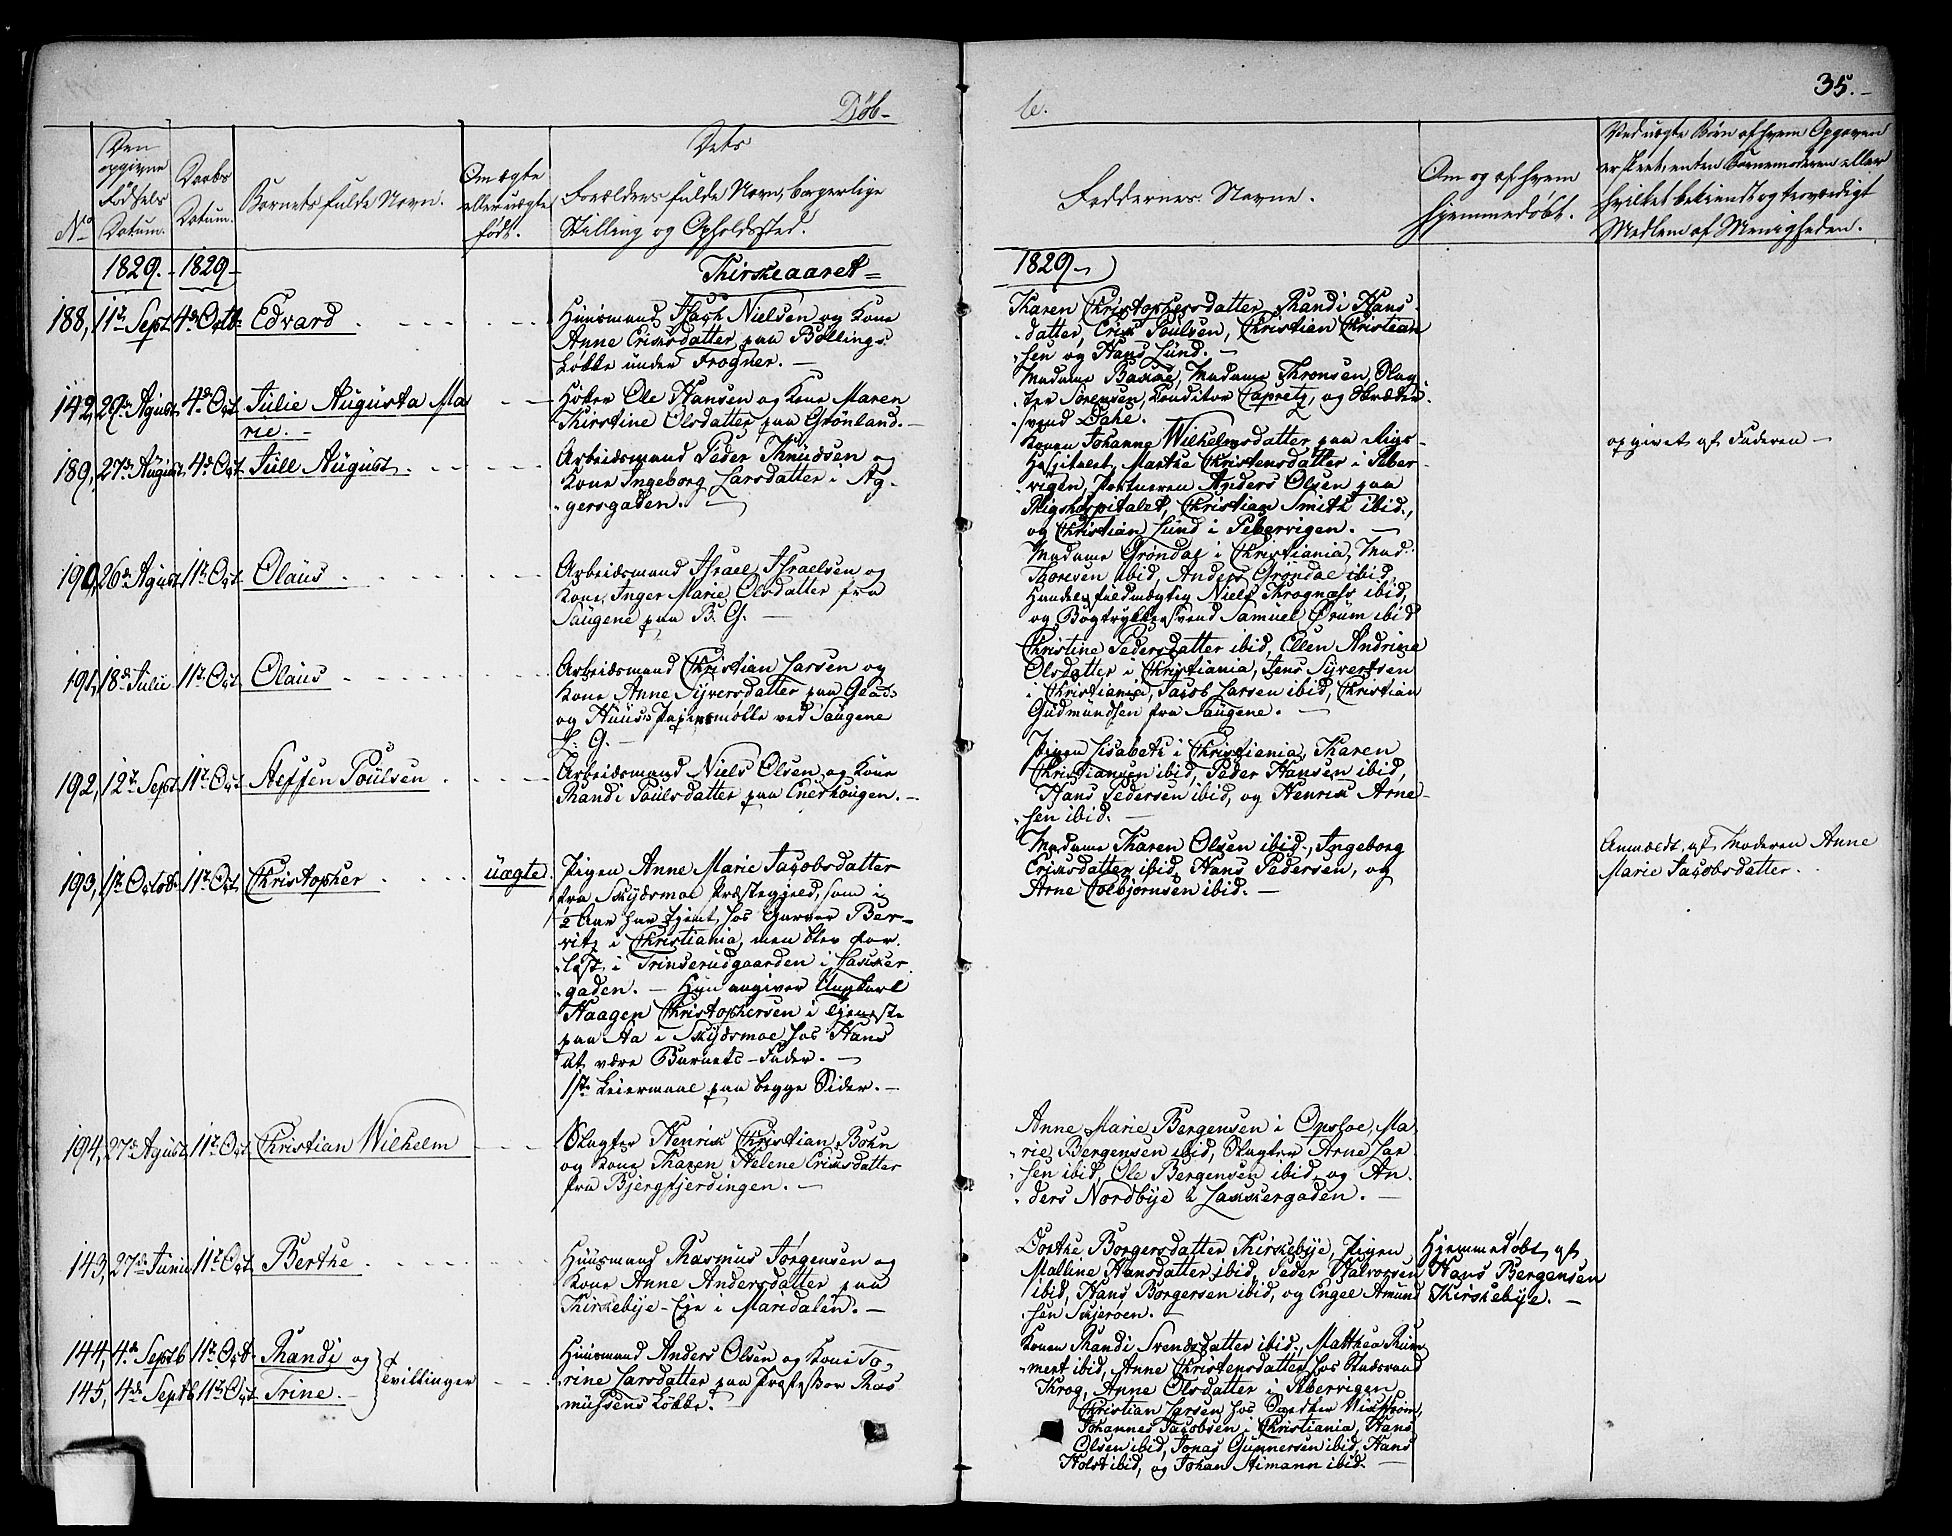 35.
Døb-
te.
No
Den opgivne Fødsels Datum.
Daabs Datum.
Barnets fulde Navn.
Om ægte eller uægte født.
Dets
Forældres fulde Navn, borgerlige
Stilling og Opholdssted.
Faddernes Navne.
Om og af hvem
hjemmedøbt.
Ved uægte Børn af hvem Opgaven
er skeet, enten Barnemoderen eller
hvilket bekiendt og troværdigt
Medlem af Menigheden.
1829. 1829
Kirkeaaret
1829
188, 11te Sept 4de Octb. Edvard
Huusmand Nielsen og Kone
Anne Ericksdatter paa Bollings
Løkke under Frogner.
Karen Christophersdatter, Randi Hans-
datter, Erick Poulsen, Christian Christian
sen og Hans Lund.
142, 29de Agust 4de Oct. Julie Augusta Ma
rie.
Høker Ole Hansen og Kone Maren
Kirstine Olsdatter paa Grønland.
Madame Madame Thronsen, Slag
ter Sørensen, Conditor Capretz, og Skræder
svend Dahl.
189, 27de August 4de Oct. Jull August
Arbeidsmand Peder Knudsen og
Kone Ingeborg Larsdatter i Ag-
gersgaden.
Konen Johanne Wilhelmsdatter paa Rigs
Hospitalet, Marthe Christensdatter i Piber-
vigen, Portneren Anders Olsen paa
Rigshospitalet, Christian Smith ibid.,
og Christian Lund i Pibervigen.
opgivet af Faderen
190, 26de Agust 11te Oct. Olaus
Arbeidsmand Israel Israelsen og
Kone Inger Marie Olsdatter fra
Saugene paa B. G.
Madame Grøndal i Christiania, Mad.
Thoresen ibid, Anders Grøndal ibid,
Handelsfuldmægtig Niels Krognæss ibid,
og Bogtrykkersvend Samuel Ørum ibid
191, 18de Julii 11te Oct. Olaus
Arbeidsmand Christian Larsen og
Kone Anne Syversdatter paa Glads
og Huus Papirsmølle ved Saugene
P. G.
Christine Pedersdatter ibid, Ellen Andrine
Olsdatter i Christiania, Jens Syvertsen
i Christiania, Jacob Larsen ibid, Christian
Gudmundsen fra Saugene.
192, 12te Sept. 11te Oct. Steffen Poulsen
Arbeidsmand Niels Olsen og Kone
Randi Poulsdatter paa Enerhougen.
Pigen Lisabeth i Christiania, Karen
Christiansen ibid, Peder Hansen ibid,
Hans Pedersen ibid, og Henrik Arne-
sen ibid.
193, 1te Octob. 11te Oct. Christopher
uægte.
Pigen Anne Marie Jacobsdatter
fra Skydsmoe Præstegjeld, som i
1/2 Aar har tjent hos Garver Ber-
vitz i Christiania, men blev for
løst i Trinserudgaarden i Lakker
gaden. Hun angiver Ungkarl
Haagen Christophersen i Tjeneste
paa Aa i Skydsmoe hos Hans
at være Barnets Fader.
1ste Leiermaal paa begge Sider.
Madame Karen Olsen ibid., Ingeborg
Ericksdatter ibid, Hans Pedersen, og
Arne Colbjørnsen ibid.
Anmeldt af Moderen Anne
Marie Jacobsdatter.
194, 27de Agust 11te Oct. Christian Wilhelm
Slagter Henrik Christian Bohn
og Kone Karen Helene Ericksdatter
fra Bjergfjerdingen.
Anne Marie Bergensen i Opsloe, Ma
rie Bergensen ibid, Slagter Arne Lar
sen ibid, Ole Bergensen ibid, og An
ders Nordbye i Lakkergaden.
143, 27de Junii 11te Oct. Berthe
Huusmand Rasmus Jørgensen og
Kone Anne Andersdatter paa
Kirkebye-Eje i Maridalen.
Dorthe Borgersdatter Kirkebye, Pigen
Malline Hansdatter ibid, Peder Halvorsen
ibid, Hans Borgersen ibid, og Engel Amund
sen Skjerven.
Hjemmedøbt af
Hans Bergensen
Kirkebye.
144, 4de Septb 11te Oct Randi og
145, 4de Septb 11te Oct Trine.
Tvillinger
Huusmand Anders Olsen og Kone To
rine Larsdatter paa Professor Ras
mussens Løkke.
Konen Randi Svendsdatter ibid, Matthea Rum
mert ibid, Anne Christensdatter hos Stadsraad
Krog, Anne Olsdatter i Pibervigen
Christian Larsen hos
Johannes Jacobsen i Christiania, Hans
Olsen ibid, Jonas Gunnersen ibid, Hans
Holst ibid, og Johan Aimann ibid.